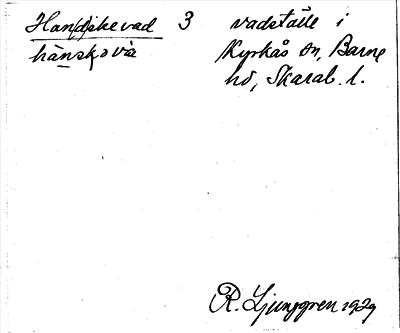 Han(d)skevad 3 vadställe i
hànskovà Kyrkås sn, Barne
hd, Skarab. l.
R. Ljunggren 1929